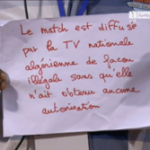 Le match est diffusé
par la TV nationale
algérienne de façon
illégale sans qu'elle
n'ait obtenu aucune
autorisation